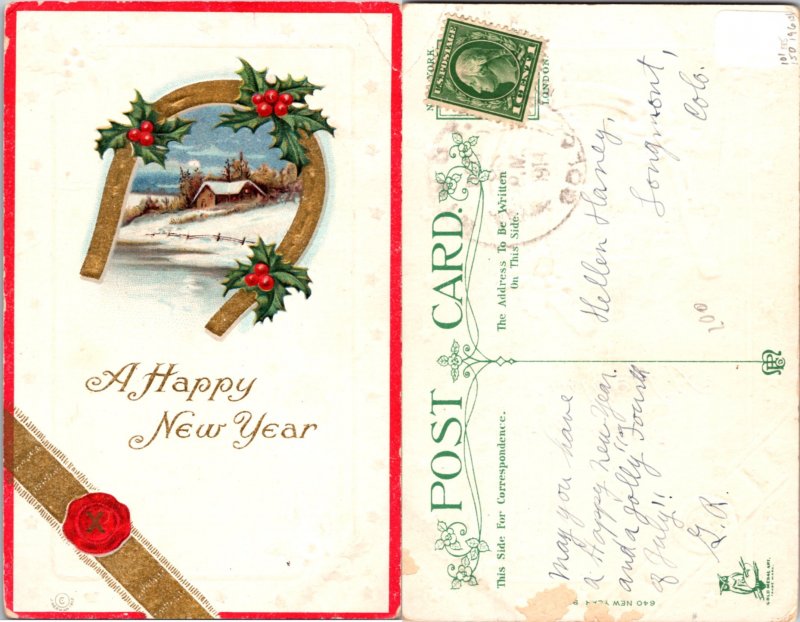 A Happy
New Year
POST CARD.
This Side For Correspondence.
The Address To Be Written
On This Side.
U.S. POSTAGE
1 CENT 1
LONDON
1914
COLO
May you have
a Happy New Year
and a jolly "Fourth
of July!!
G.R.
Hellen Haney,
Longmont,
Colo.
100
640 NEW YEAR
GOLD MEDAL ART